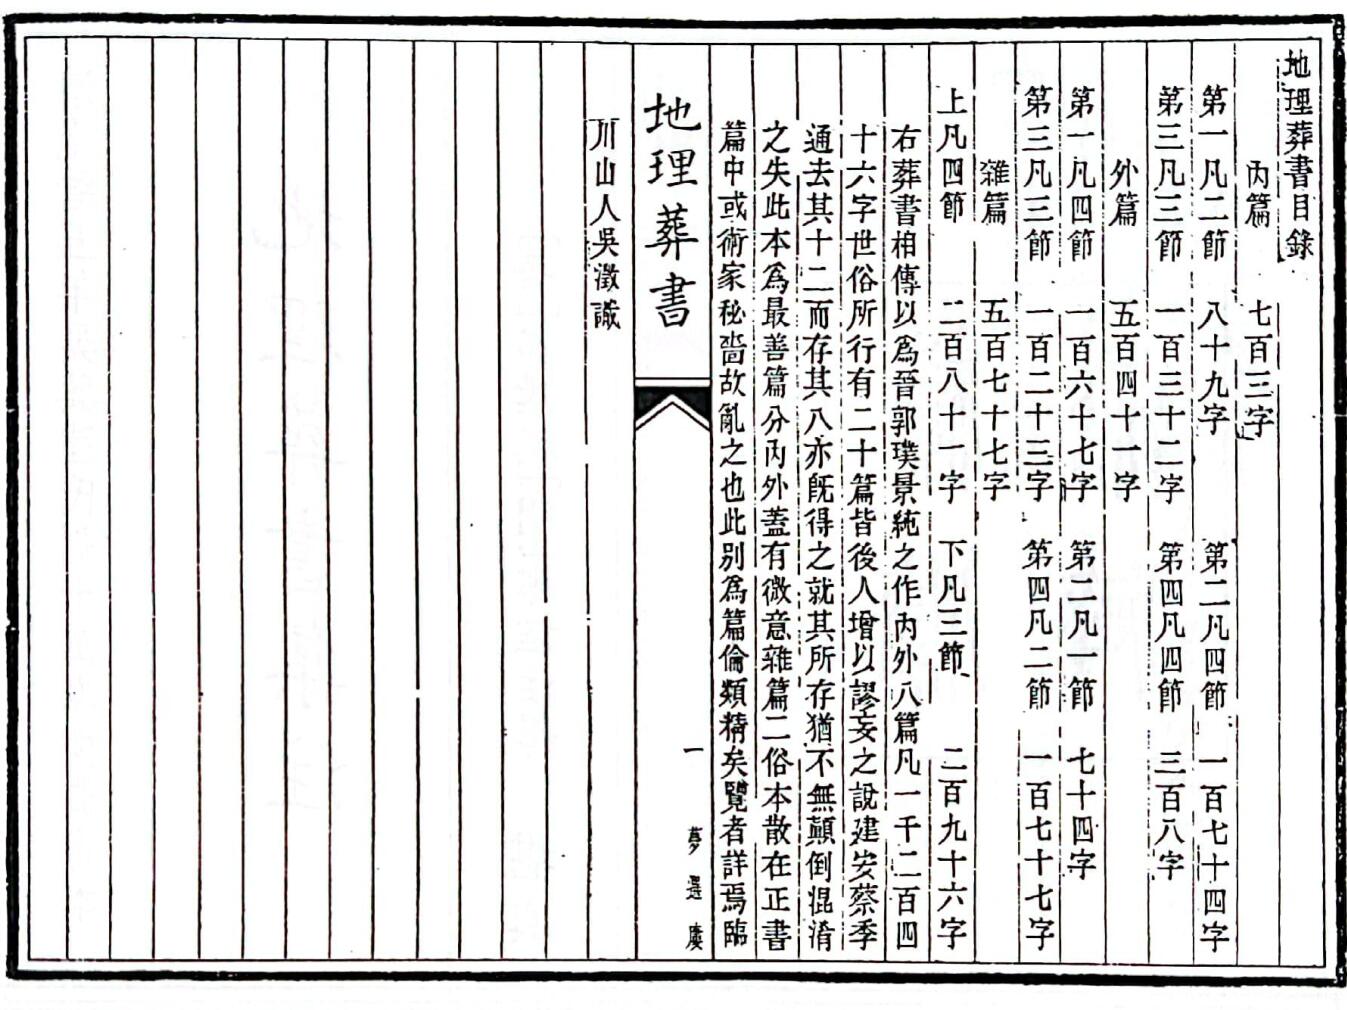 地理葬書目錄
內篇 七百三字
第一凡二節 八十九字 第二凡四節 一百七十四字
第三凡三節 一百三十二字 第四凡四節 三百八字
外篇 五百四十一字
第一凡四節 一百六十七字 第二凡一節 七十四字
第三凡三節 一百二十三字 第四凡二節 一百七十七字
雜篇 五百七十七字
上凡四節 二百八十一字 下凡三節 二百九十六字
右葬書相傳以爲晉郭璞景純之作內外八篇凡一千二百四
十六字世俗所行有二十篇皆後人增以謬妄之說建安蔡季
通去其十二而存其八亦旣得之就其所存猶不無顚倒混淆
之失此本爲最善篇分內外蓋有微意雜篇二俗本散在正書
篇中或術家秘嗇故亂之也此別爲篇倫類精矣覽者詳焉臨
地理葬書
一
夢選廔
川山人吳澂識